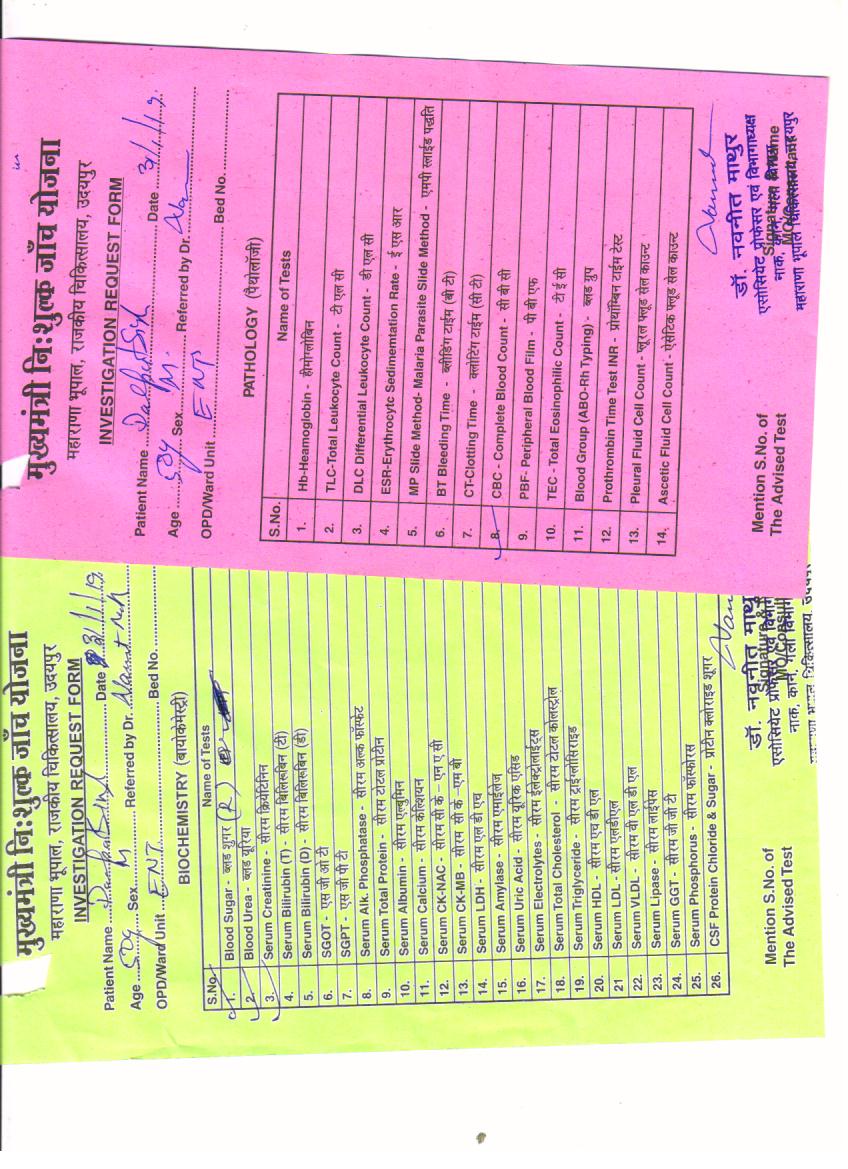 मुख्यमंत्री नि:शुल्क जाँच योजना
महाराणा भूपाल, राजकीय चिकित्सालय, उदयपुर
INVESTIGATION REQUEST FORM
Patient Name Date 3/1/19
Age 50y Sex M. Referred by Dr.
OPD/Ward Unit ENT Bed No.
PATHOLOGY (पैथोलॉजी)
S.No. Name of Tests
1. Hb-Heamoglobin - हीमोग्लोबिन
2. TLC-Total Leukocyte Count - टी एल सी
3. DLC Differential Leukocyte Count - डी एल सी
4. ESR-Erythrocytc Sedimemtation Rate - ई एस आर
5. MP Slide Method- Malaria Parasite Slide Method - एमपी स्लाईड पद्धति
6. BT Bleeding Time - ब्लीडिंग टाईम (बी टी)
7. CT-Clotting Time - क्लोटिंग टाईम (सी टी)
8. CBC - Complete Blood Count - सी बी सी
9. PBF- Peripheral Blood Film - पी बी एफ
10. TEC - Total Eosinophilic Count - टी ई सी
11. Blood Group (ABO-Rh Typing) - ब्लड ग्रुप
12. Prothrombin Time Test INR - प्रोथ्रॉम्बिन टाईम टेस्ट
13. Pleural Fluid Cell Count - प्लूरल फ्लूड सेल काउन्ट
14. Ascetic Fluid Cell Count - ऐसेटिक फ्लूड सेल काउन्ट
Mention S.No. of
The Advised Test
डॉ. नवनीत माथुर
एसोसियेट प्रोफेसर एवं विभागाध्यक्ष
नाक, कान, गला विभाग
महाराणा भूपाल चिकित्सालय, उदयपुर
मुख्यमंत्री नि:शुल्क जाँच योजना
महाराणा भूपाल, राजकीय चिकित्सालय, उदयपुर
INVESTIGATION REQUEST FORM
Patient Name Date 3/1/19
Age 50y Sex M Referred by Dr.
OPD/Ward Unit ENT Bed No.
BIOCHEMISTRY (बायोकेमेस्ट्री)
S.No. Name of Tests
1. Blood Sugar - ब्लड शुगर (R)
2. Blood Urea - ब्लड यूरिया
3. Serum Creatinine - सीरम क्रियेटिनिन
4. Serum Bilirubin (T) - सीरम बिलिरूबिन (टी)
5. Serum Bilirubin (D) - सीरम बिलिरूबिन (डी)
6. SGOT - एस जी ओ टी
7. SGPT - एस जी पी टी
8. Serum Alk. Phosphatase - सीरम अल्क फॉस्फेट
9. Serum Total Protein - सीरम टोटल प्रोटीन
10. Serum Albumin - सीरम एल्बुमिन
11. Serum Calcium - सीरम केल्शियम
12. Serum CK-NAC - सीरम सी के – एन ए सी
13. Serum CK-MB - सीरम सी के – एम बी
14. Serum LDH - सीरम एल डी एच
15. Serum Amylase - सीरम एमाईलेज
16. Serum Uric Acid - सीरम यूरिक एसिड
17. Serum Electrolytes - सीरम ईलेक्ट्रोलाईट्स
18. Serum Total Cholesterol - सीरम टोटल कोलस्ट्रोल
19. Serum Triglyceride - सीरम ट्राईग्लोसिराइड
20. Serum HDL - सीरम एच डी एल
21 Serum LDL - सीरम एलडीएल
22. Serum VLDL - सीरम वी एल डी एल
23. Serum Lipase - सीरम लाईपेस
24. Serum GGT - सीरम जी जी टी
25. Serum Phosphorus - सीरम फॉस्फोरस
26. CSF Protein Chloride & Sugar - प्रोटीन क्लोराइड शूगर
Mention S.No. of
The Advised Test
डॉ. नवनीत माथु
एसोसियेट प्रोफेसर एवं विभा
नाक, कान, गला विभा